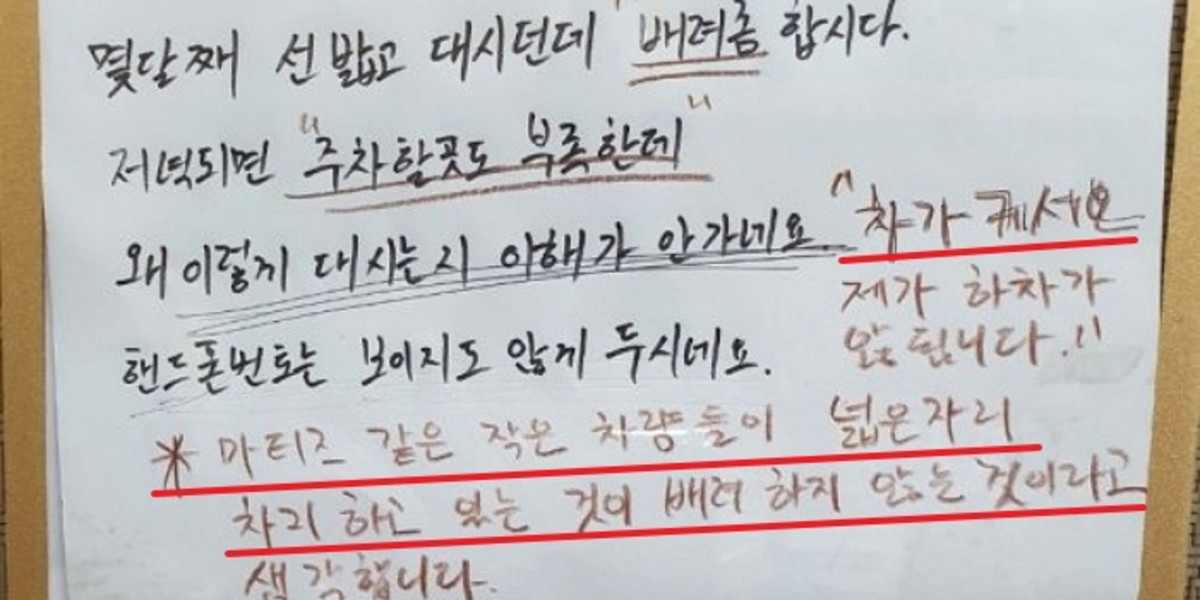 몇달째 선 밟고 대시던데 "배려좀 합시다.
저녁되면 "주차할곳도 부족한데"
왜 이렇게 대시는시 이해가 안가네요.
핸드폰번호는 보이지도 않게 두시네요.
"차가 커서요
제가 하차가
않됩니다.!!
* 마티즈 같은 작은 차량들이 넓은자리
차리 하고 있는 것이 배려 하지 않는 것이라고
생각합니다.